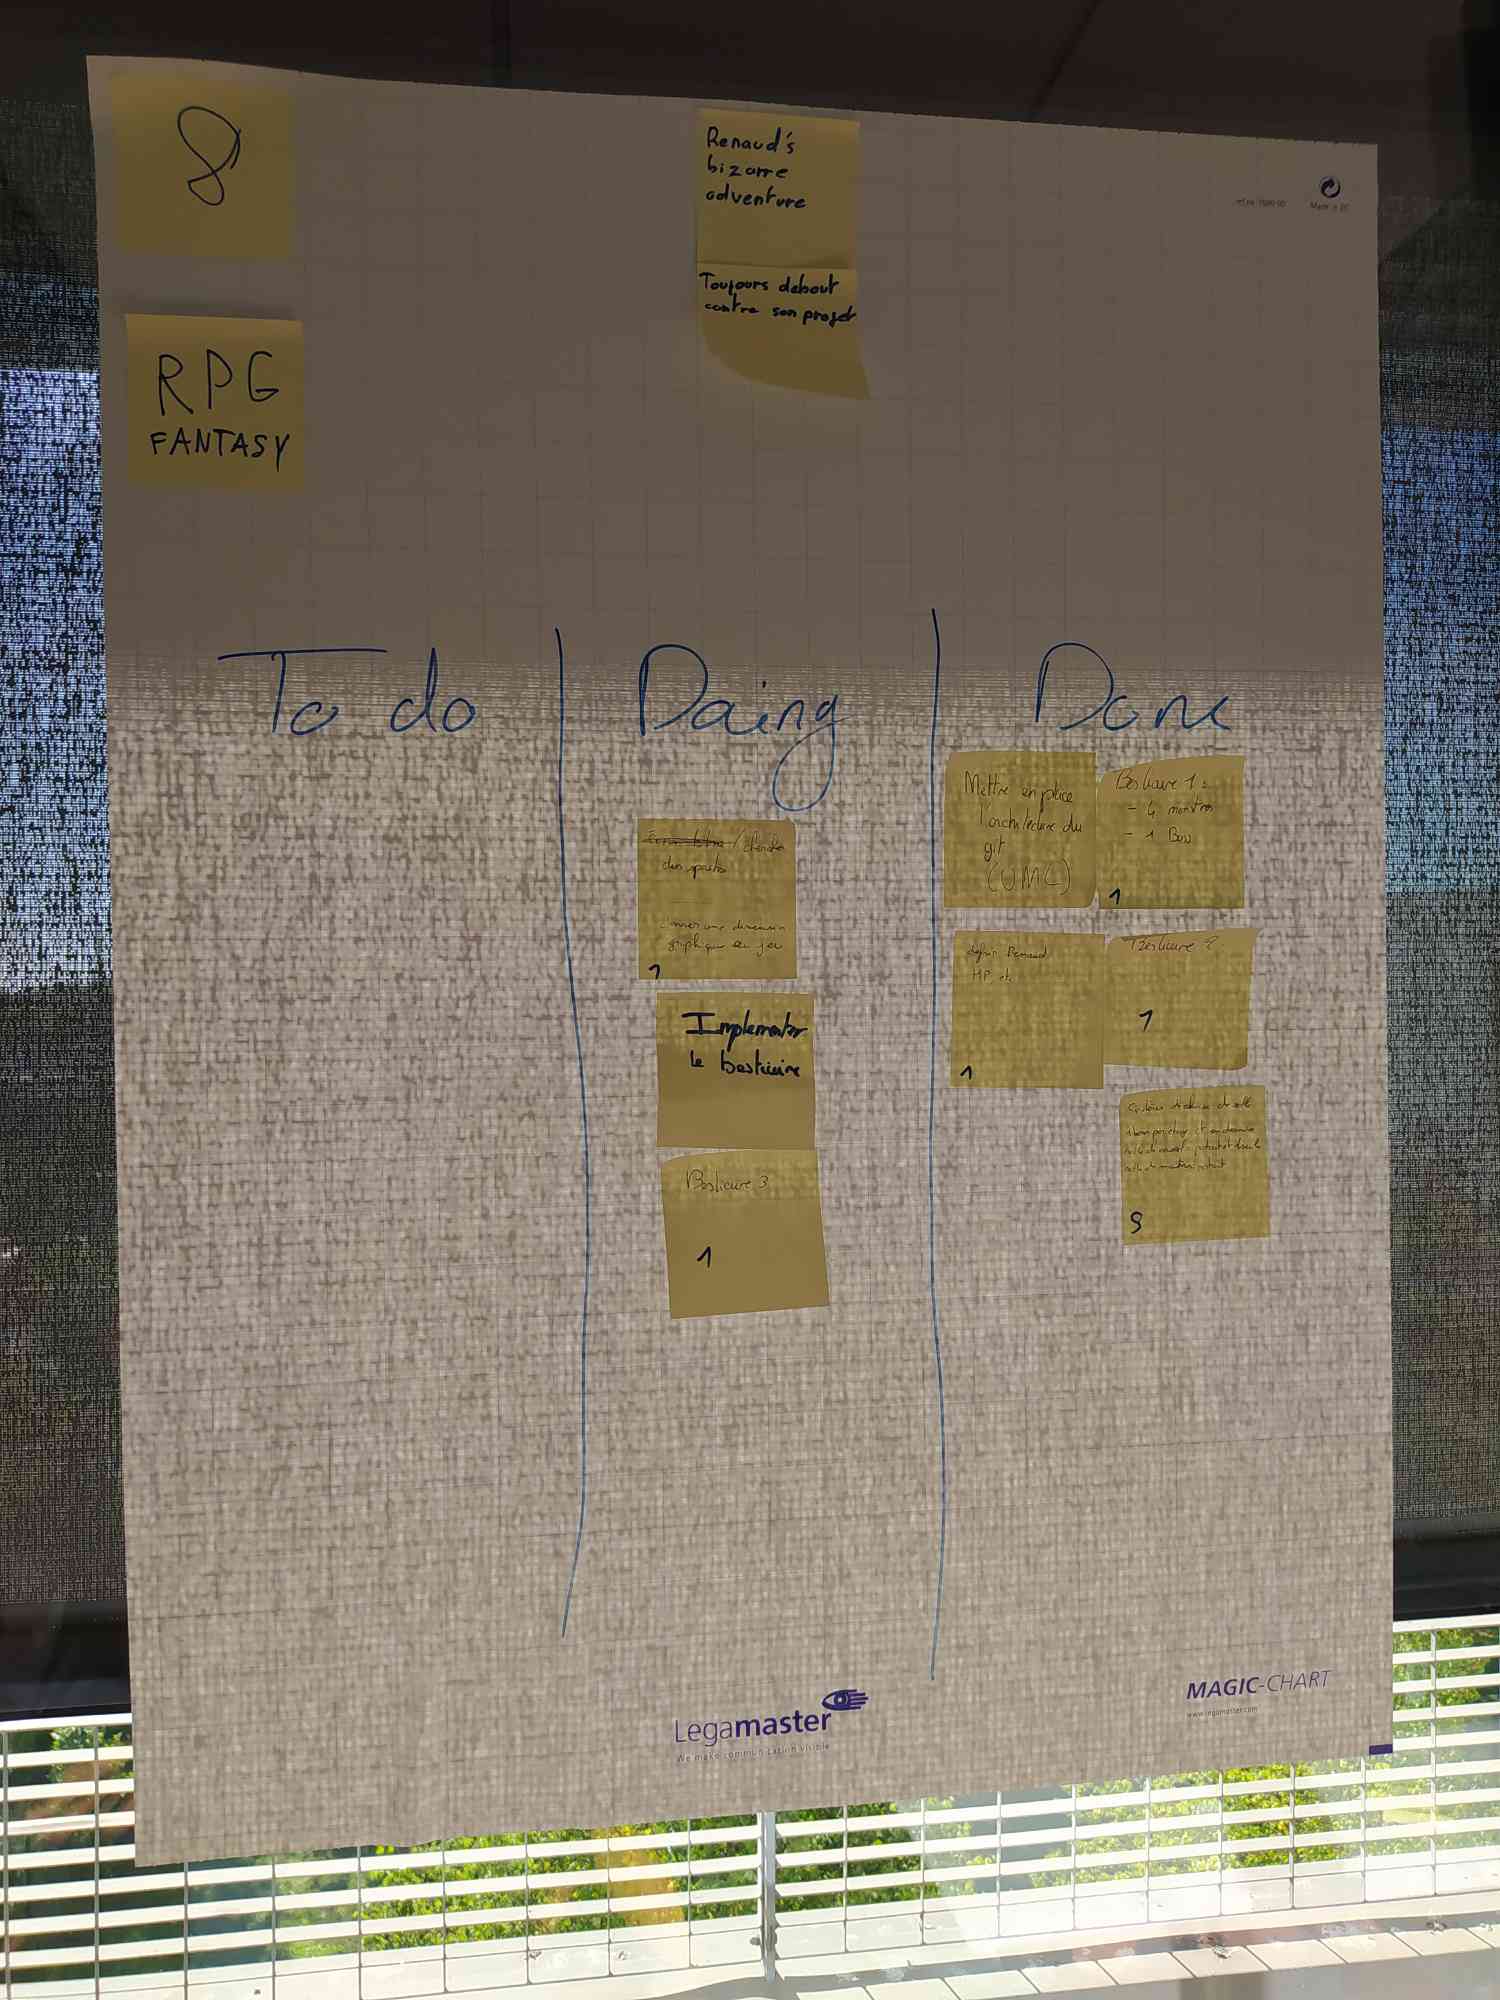 8
RPG
FANTASY
Renaud's
bizarre
adventure
Toujours debout
contre son projet
Made in
To do
Doing
Done
chercher
des
donner une dimension
graphique au jeu
1
Implementer
le bestiaire
Bestiaire 3
1
Mettre en place
l'architecture du
git
(UML)
Bestiaire 1 :
- 4 monstres
- 1 Boss
1
définir Renaud
HP etc
1
Bestiaire 2
1
de salle
Legamaster
We make communication visible
MAGIC-CHART
www.legamaster.com